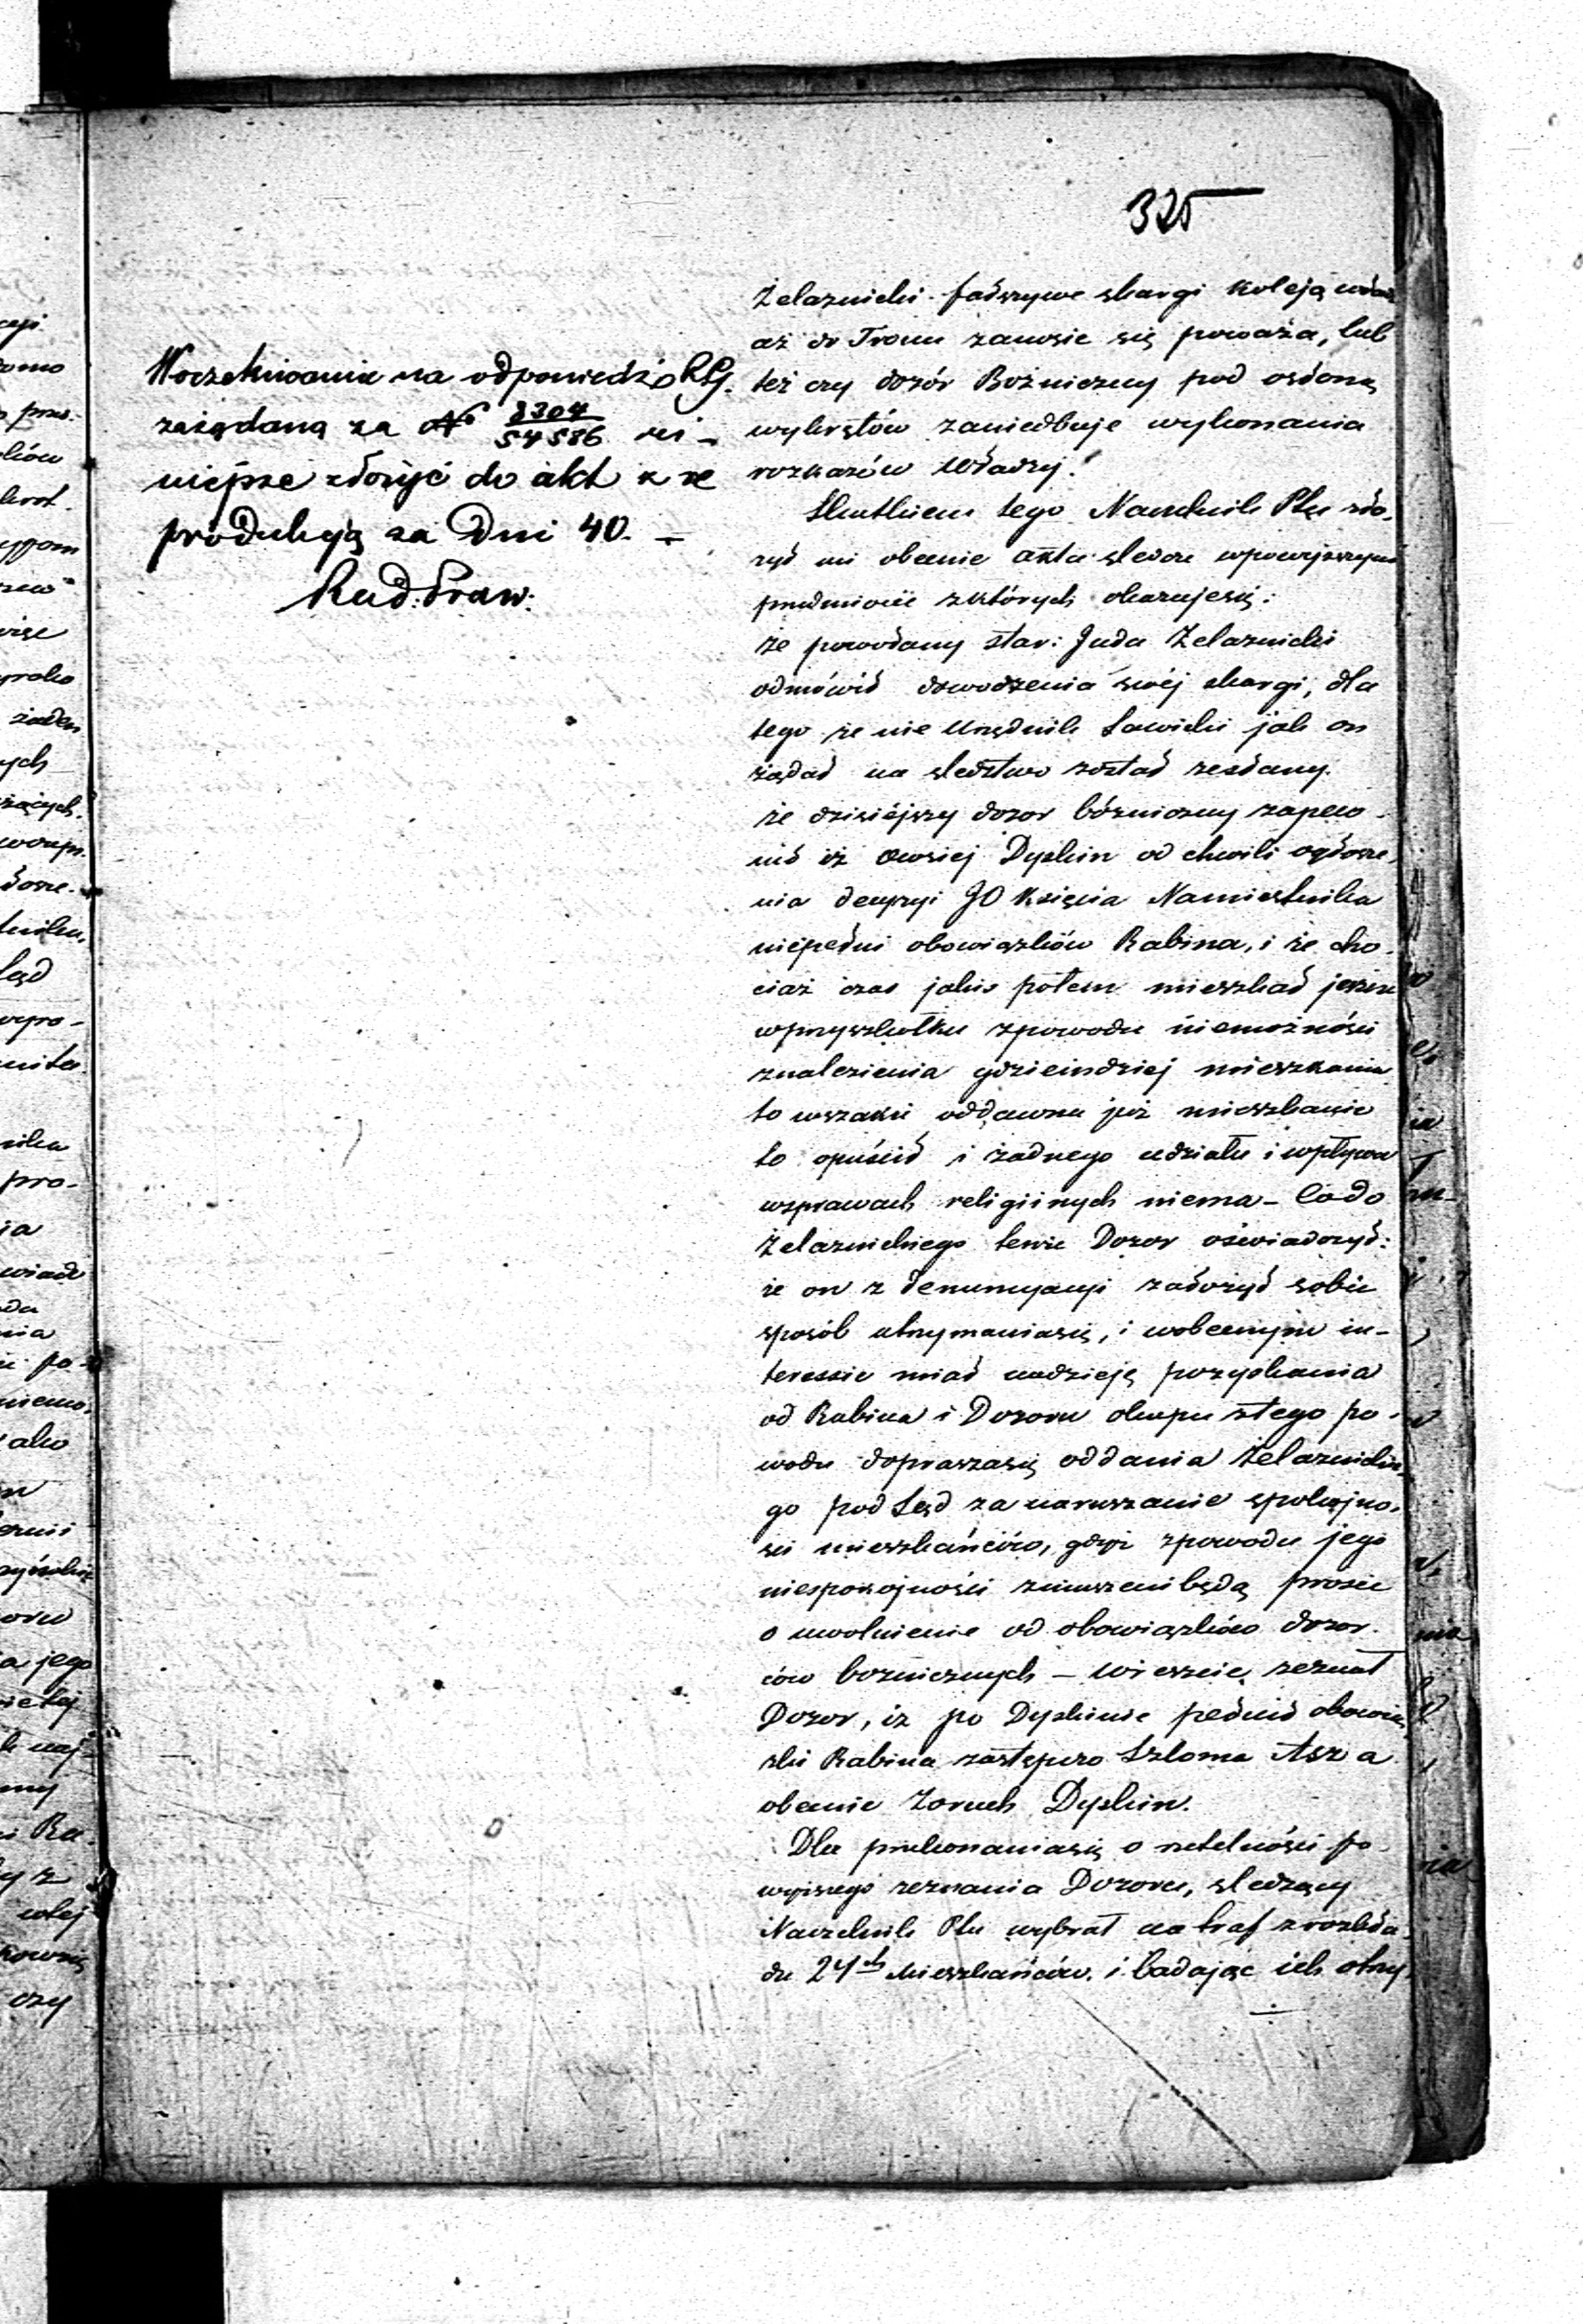 325
W oczekiwaniu na odpowiedź KRG.
zażądaną za No 3304/54586 ni-
niejsze złożyć do akt z re
produkcyą za Dni 40. –
Rad: Praw:
Żelaznicki fałszywe skargi koleją
aż do Tronu zanosić się poważa, lub
też czy dozór Bożniczny pod osłoną
wykrętów zaniedbuje wykonania
rozkazów władzy.
Skutkiem tego Naczelnik Ptu zło-
żył mi obecnie akta śledcze wpowyższym
przedmiocie zktórych okazujesię:
że powołany star: Juda Żelaznicki
odmówił dowodzenia swéj skargi, dla
tego że nie Urzędnik Sawicki jak on
żądał na śledztwo został zesłany.
że dzisiéjszy dozor bóżniczny zapew-
nił iż Owsiej Dyskin od chwili ogłosze-
nia decyzyi JO Księcia Namiestnika
niepełni obowiązków Rabina, i że cho-
ciaż czas jakis potem mieszkał jeszcze
wprzyszkołku zpowodu niemożności
znalezienia gdzieindziej mieszkania
to wszakże oddawna już mieszkanie
to opuścił i żadnego udziału i wpływu
wsprawach religiinych niema – Co do
Żelaznickiego tenże Dozor oświadczył:
że on z denuncyacyi założył sobie
sposób utrzymaniasię, i wobecnym in-
teressie miał nadzieję pozyskania
od Rabina i Dozoru okupu ztego po-
wodu dopraszasię oddania Żelaznickie
go pod Sąd za naruszanie spokojno-
ści mieszkańców, gdyż zpowodu jego
niespokojności zmuszeni będą prosić
o uwolnienie od obowiązków dozor-
ców bożnicznych – wreszcie zeznał
Dozor, iż po Dyskinie pełnił obowią
zki Rabina zastępczo Szloma Asz a
obecnie Zoruch Dyskin.
Dla przekonaniasię o rzetelności po-
wyższego zeznania Dozoru, śledzący
Naczelnik Ptu wybrał na traf z rozkła-
du 24ch Mieszkańców, i badając ich otrzy